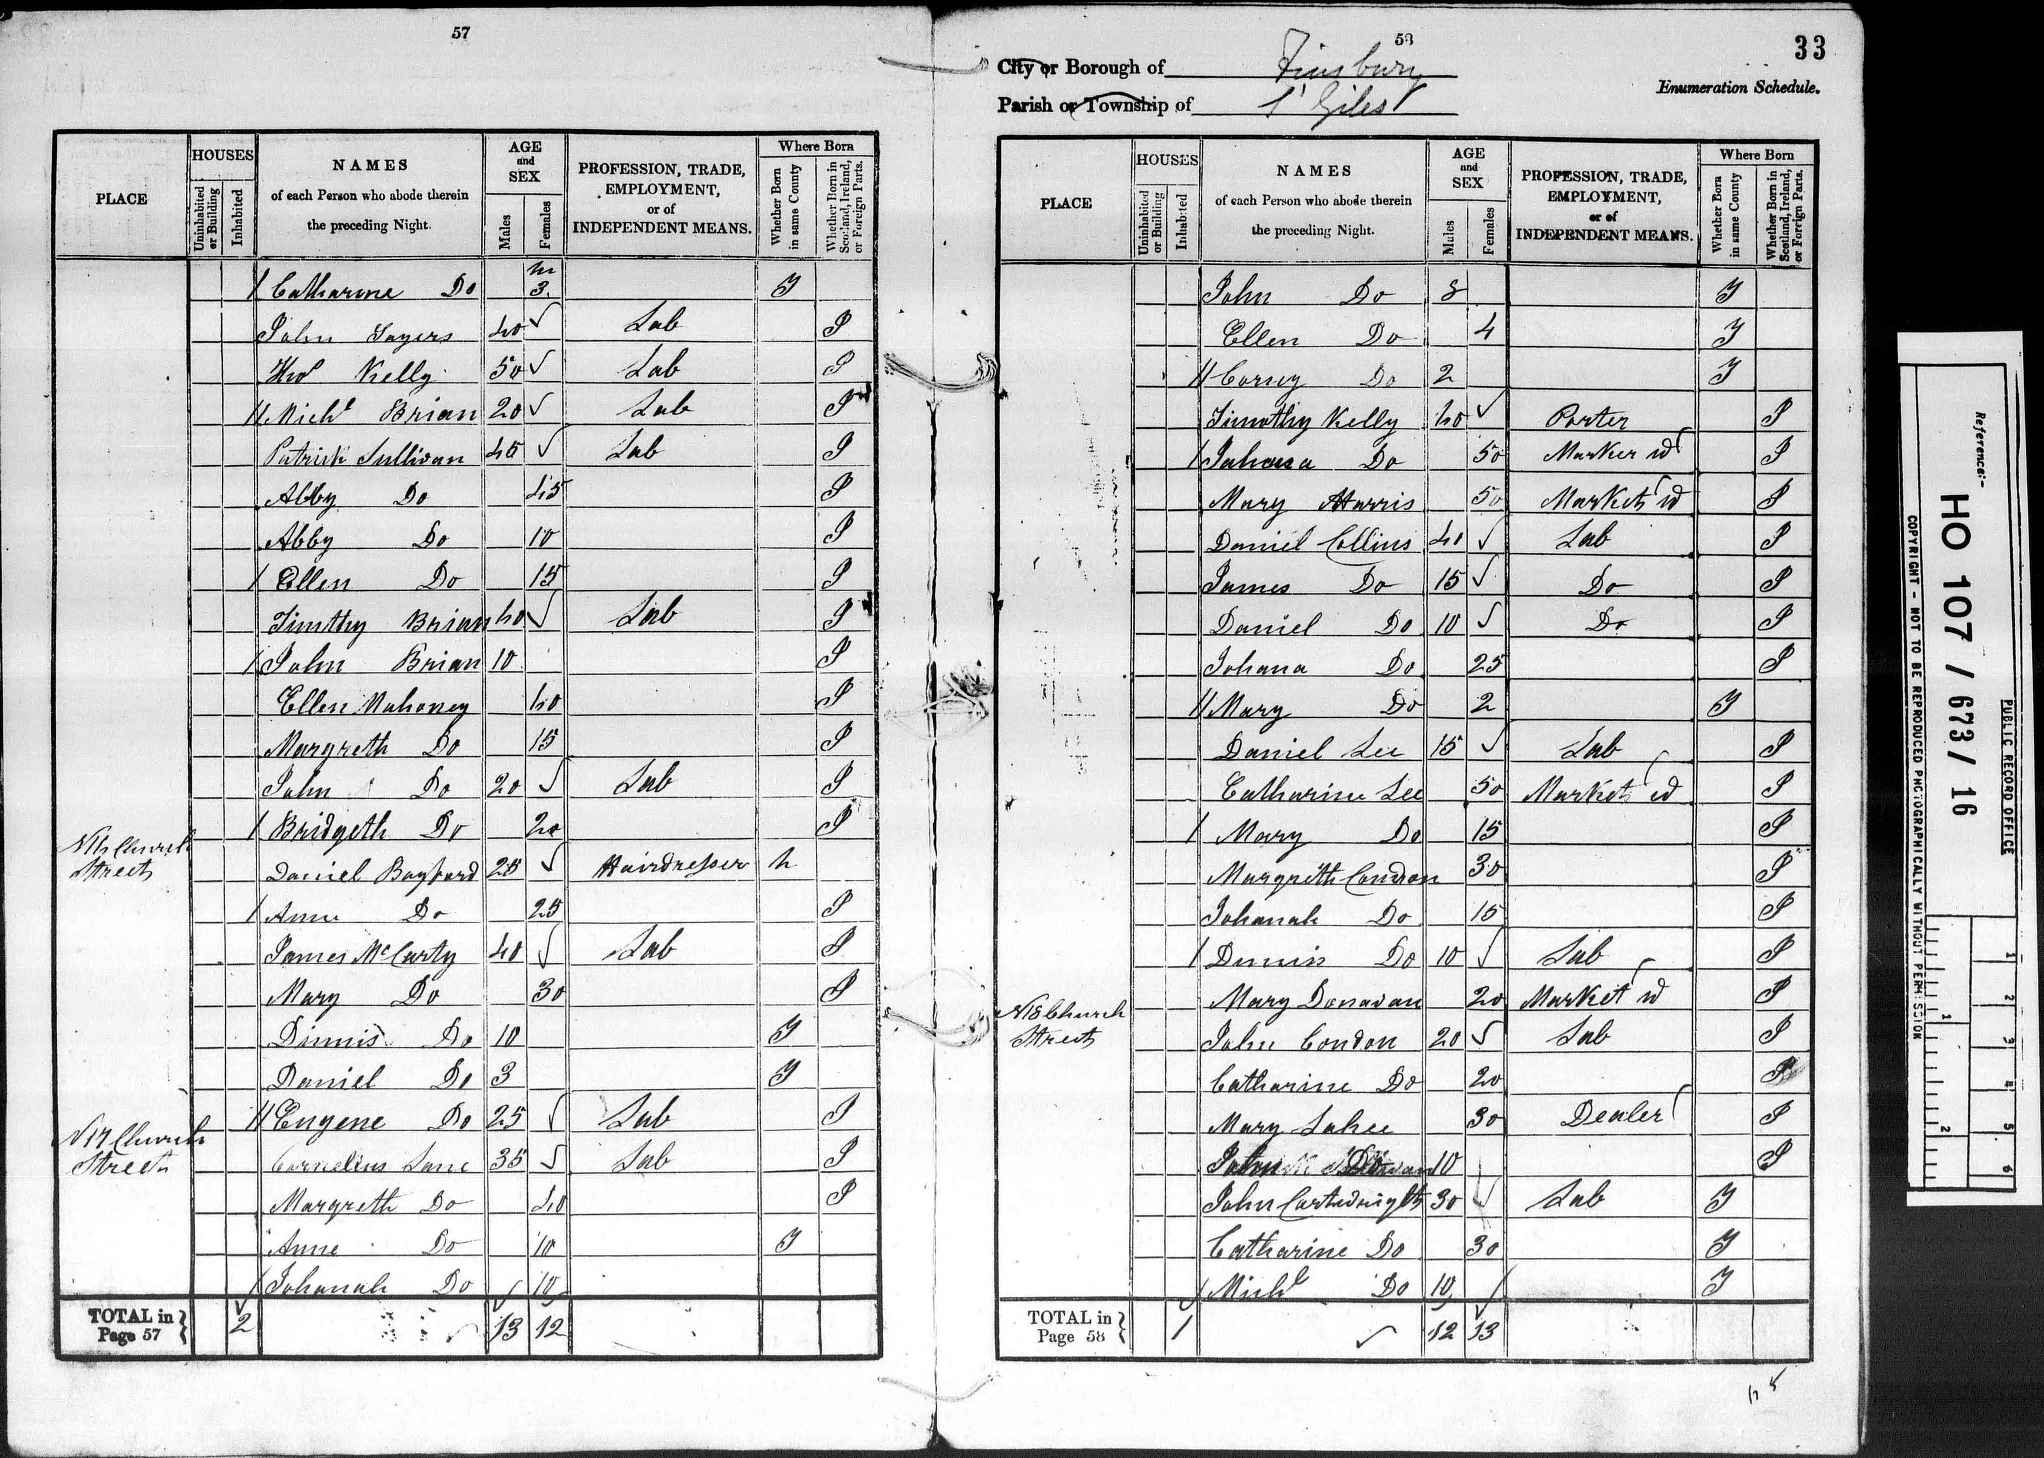 57
PLACE
HOUSES
Uninhabited or Building
Inhabited
NAMES
of each Person who abode therein
the preceding Night.
AGE
and
SEX
Males
Females
PROFESSION, TRADE,
EMPLOYMENT,
or of
INDEPENDENT MEANS.
Where Born
Whether Born in same County
Whether Born in Scotland, Ireland, or Foreign Parts.
Catharine Do 3 m Y
John Sayers 40 Lab I
Kelly 50 Lab I
Michl Brian 20 Lab I
Patrick Sullivan 45 Lab I
Abby Do 45 I
Abby Do 10 I
Ellen Do 15 I
Timthy Brian 40 Lab I
John Brian 10 I
Ellen Mahoney 40 I
Margreth Do 15 I
John Do 20 Lab I
Bridgeth Do 20 I
Church Street Daniel 25 Hairdresser n
Anne Do 25 I
James McCarty 40 Lab I
Mary Do 30 I
Dinnis Do 10 Y
Daniel Do 3 Y
Eugene Do 25 Lab I
N 17 Church Street Cornelius Lane 35 Lab I
Margreth Do 40 I
Anne Do 10 Y
Johanah Do 10
TOTAL in Page 57 } 2 13 12
58
33
City or Borough of Finsbury
Parish or Township of St Giles
Enumeration Schedule.
PLACE
HOUSES
Uninhabited or Building
Inhabited
NAMES
of each Person who abode therein
the preceding Night.
AGE
and
SEX
Males
Females
PROFESSION, TRADE,
EMPLOYMENT,
or of
INDEPENDENT MEANS.
Where Born
Whether Born in same County
Whether Born in Scotland, Ireland, or Foreign Parts.
John Do 8 Y
Ellen Do 4 Y
Do 2 Y
Timothy Kelly 40 Porter I
Do 50 Market W I
Mary Harris 50 Market W I
Daniel Collins 40 Lab I
James Do 15 Do I
Daniel Do 10 Do I
Johana Do 25 I
Mary Do 2 Y
Daniel Lee 15 Lab I
Catharine Lee 50 Market W I
Mary Do 15 I
Margreth Condron 30 I
Johanah Do 15 I
Dinnis Do 10 Lab I
Mary Donavan 20 Market W I
N 18 Church Street John Condon 20 Lab I
Catharine Do 20 I
Mary Lahee 30 Dealer I
John 10 I
John Cartwright 30 Lab Y
Catharine Do 30 Y
Michl Do 10 Y
TOTAL in Page 58 } 1 12 13
Reference:-
HO 107 / 673 / 16
PUBLIC RECORD OFFICE
COPYRIGHT - NOT TO BE REPRODUCED PHOTOGRAPHICALLY WITHOUT PERMISSION
1 2 3 4 5 6
1 2